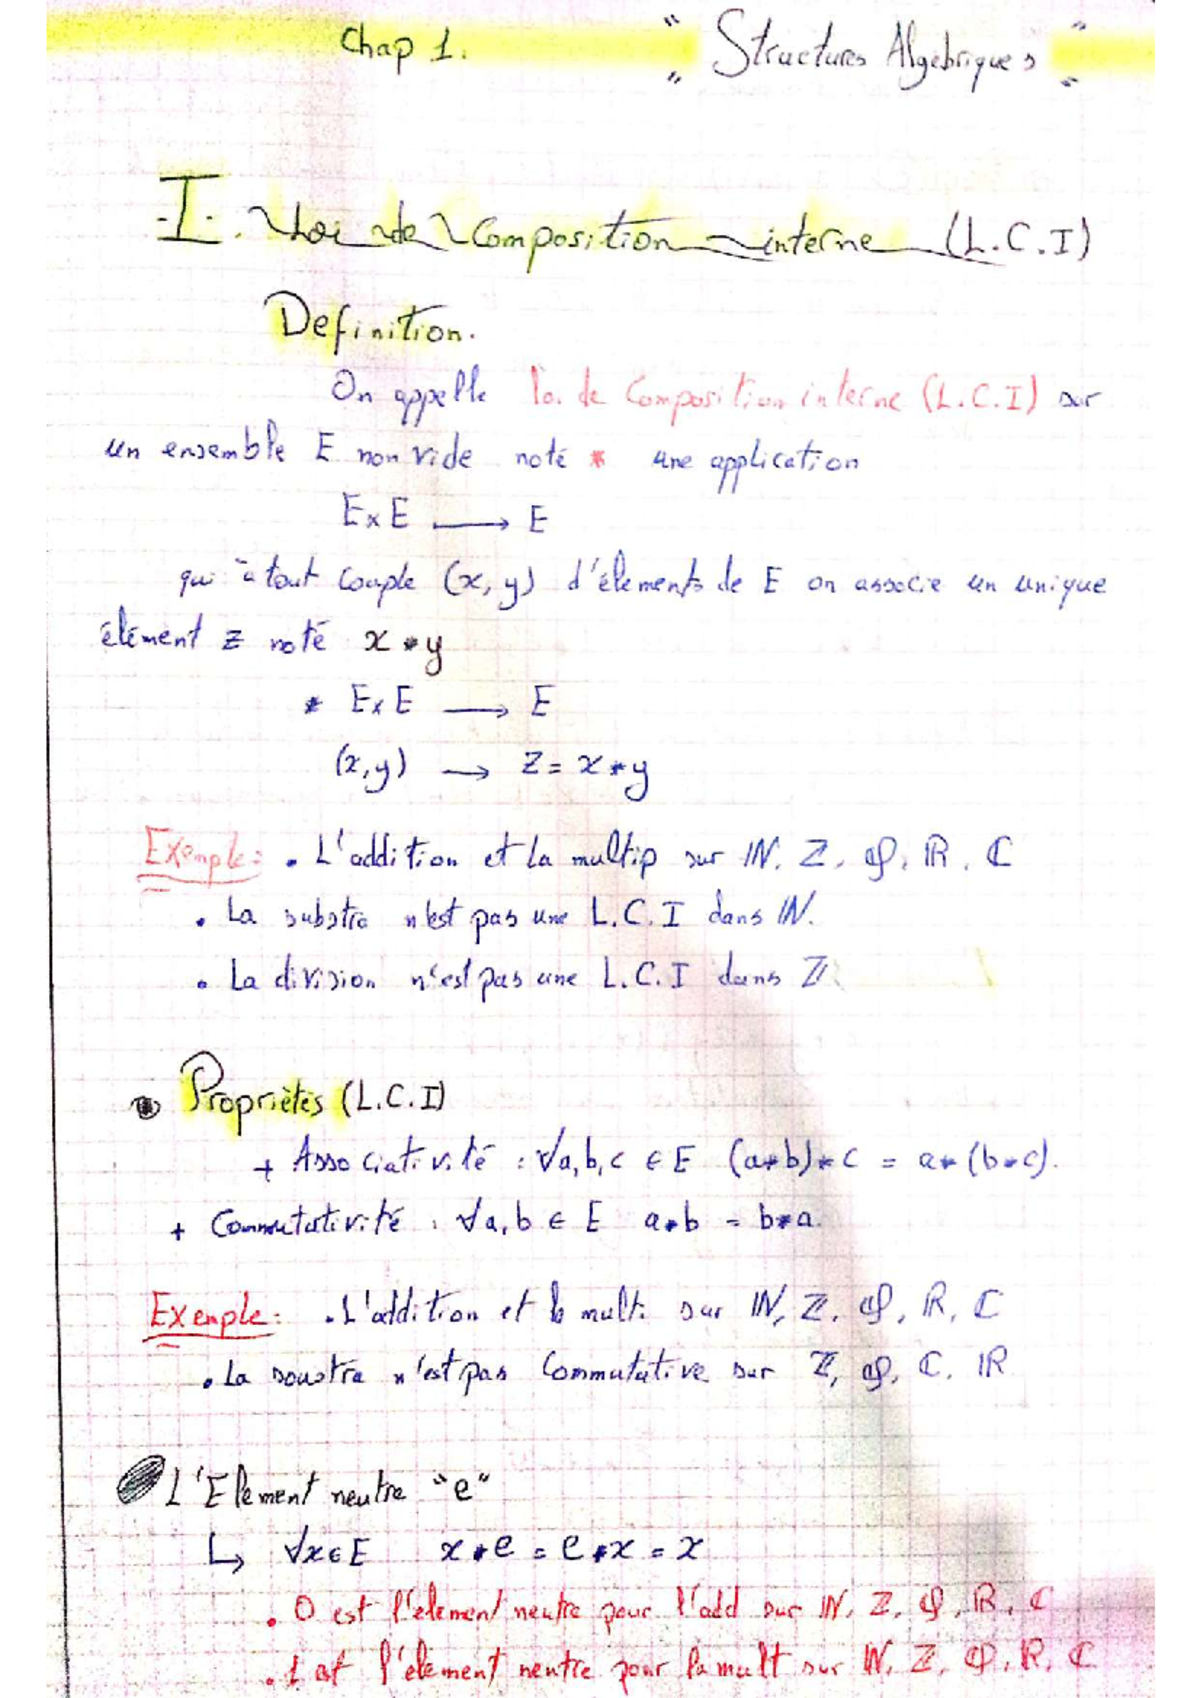 Chap 1. " Structures Algébriques "
I. Loi de Composition interne (L.C.I)
Definition.
On appelle loi de Composition interne (L.C.I) sur
un ensemble E non vide noté * une application
E×E → E
qui à tout couple (x, y) d'élements de E on associe un unique
élément z noté x * y
* E×E → E
(x,y) → z = x * y
Exemple : • L'addition et la multip sur ℕ, ℤ, ℚ, ℝ, ℂ
• La substra n'est pas une L.C.I dans ℕ.
• La division n'est pas une L.C.I dans ℤ
• Propriétés (L.C.I)
+ Associativité : ∀a,b,c ∈ E (a*b)*c = a*(b*c).
+ Commutativité : ∀a,b ∈ E a*b = b*a.
Exemple : • L'addition et la mult. sur ℕ, ℤ, ℚ, ℝ, ℂ
• La soustra n'est pas Commutative sur ℤ, ℚ, ℂ, ℝ
L'Element neutre "e"
↳ ∀x∈E x*e = e*x = x
• 0 est l'élement neutre pour l'add sur ℕ, ℤ, ℚ, ℝ, ℂ
• 1 est l'élement neutre pour la mult sur ℕ, ℤ, ℚ, ℝ, ℂ